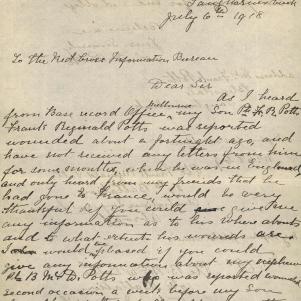 July 6th 1918
To the Red Cross Information Bureau
Dear Sir
As I heard
from Base record Office, Melbourne my Son Pte F. R. Potts
Frank Reginald Potts was reported
wounded about a fortnight ago, and
have not received any letters from him
for some months, while he was in England
and only heard from my friends that he
had gone to France, would be very
thankful if you could give me
any information as to his whereabouts
and to what extent his wounds are
would be pleased if you could
give any information about my nephew
Potts who was reported wounded
second occasion a week before my Son